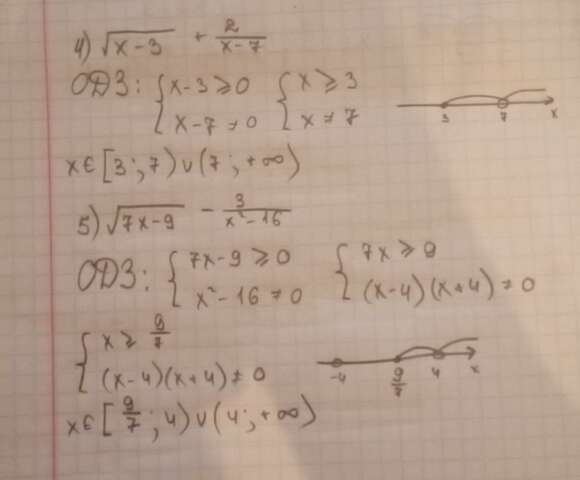 4) √(x-3) + 2/(x-7)
ОДЗ: { x-3 ⩾ 0 { x ⩾ 3
x-7 ≠ 0 x ≠ 7
3 7 x
x ∈ [3; 7) ∪ (7; +∞)
5) √(7x-9) - 3/(x²-16)
ОДЗ: { 7x-9 ⩾ 0 { 7x ⩾ 9
x²-16 ≠ 0 (x-4)(x+4) ≠ 0
{ x ⩾ 9/7
(x-4)(x+4) ≠ 0
-4 9/7 4 x
x ∈ [9/7; 4) ∪ (4; +∞)